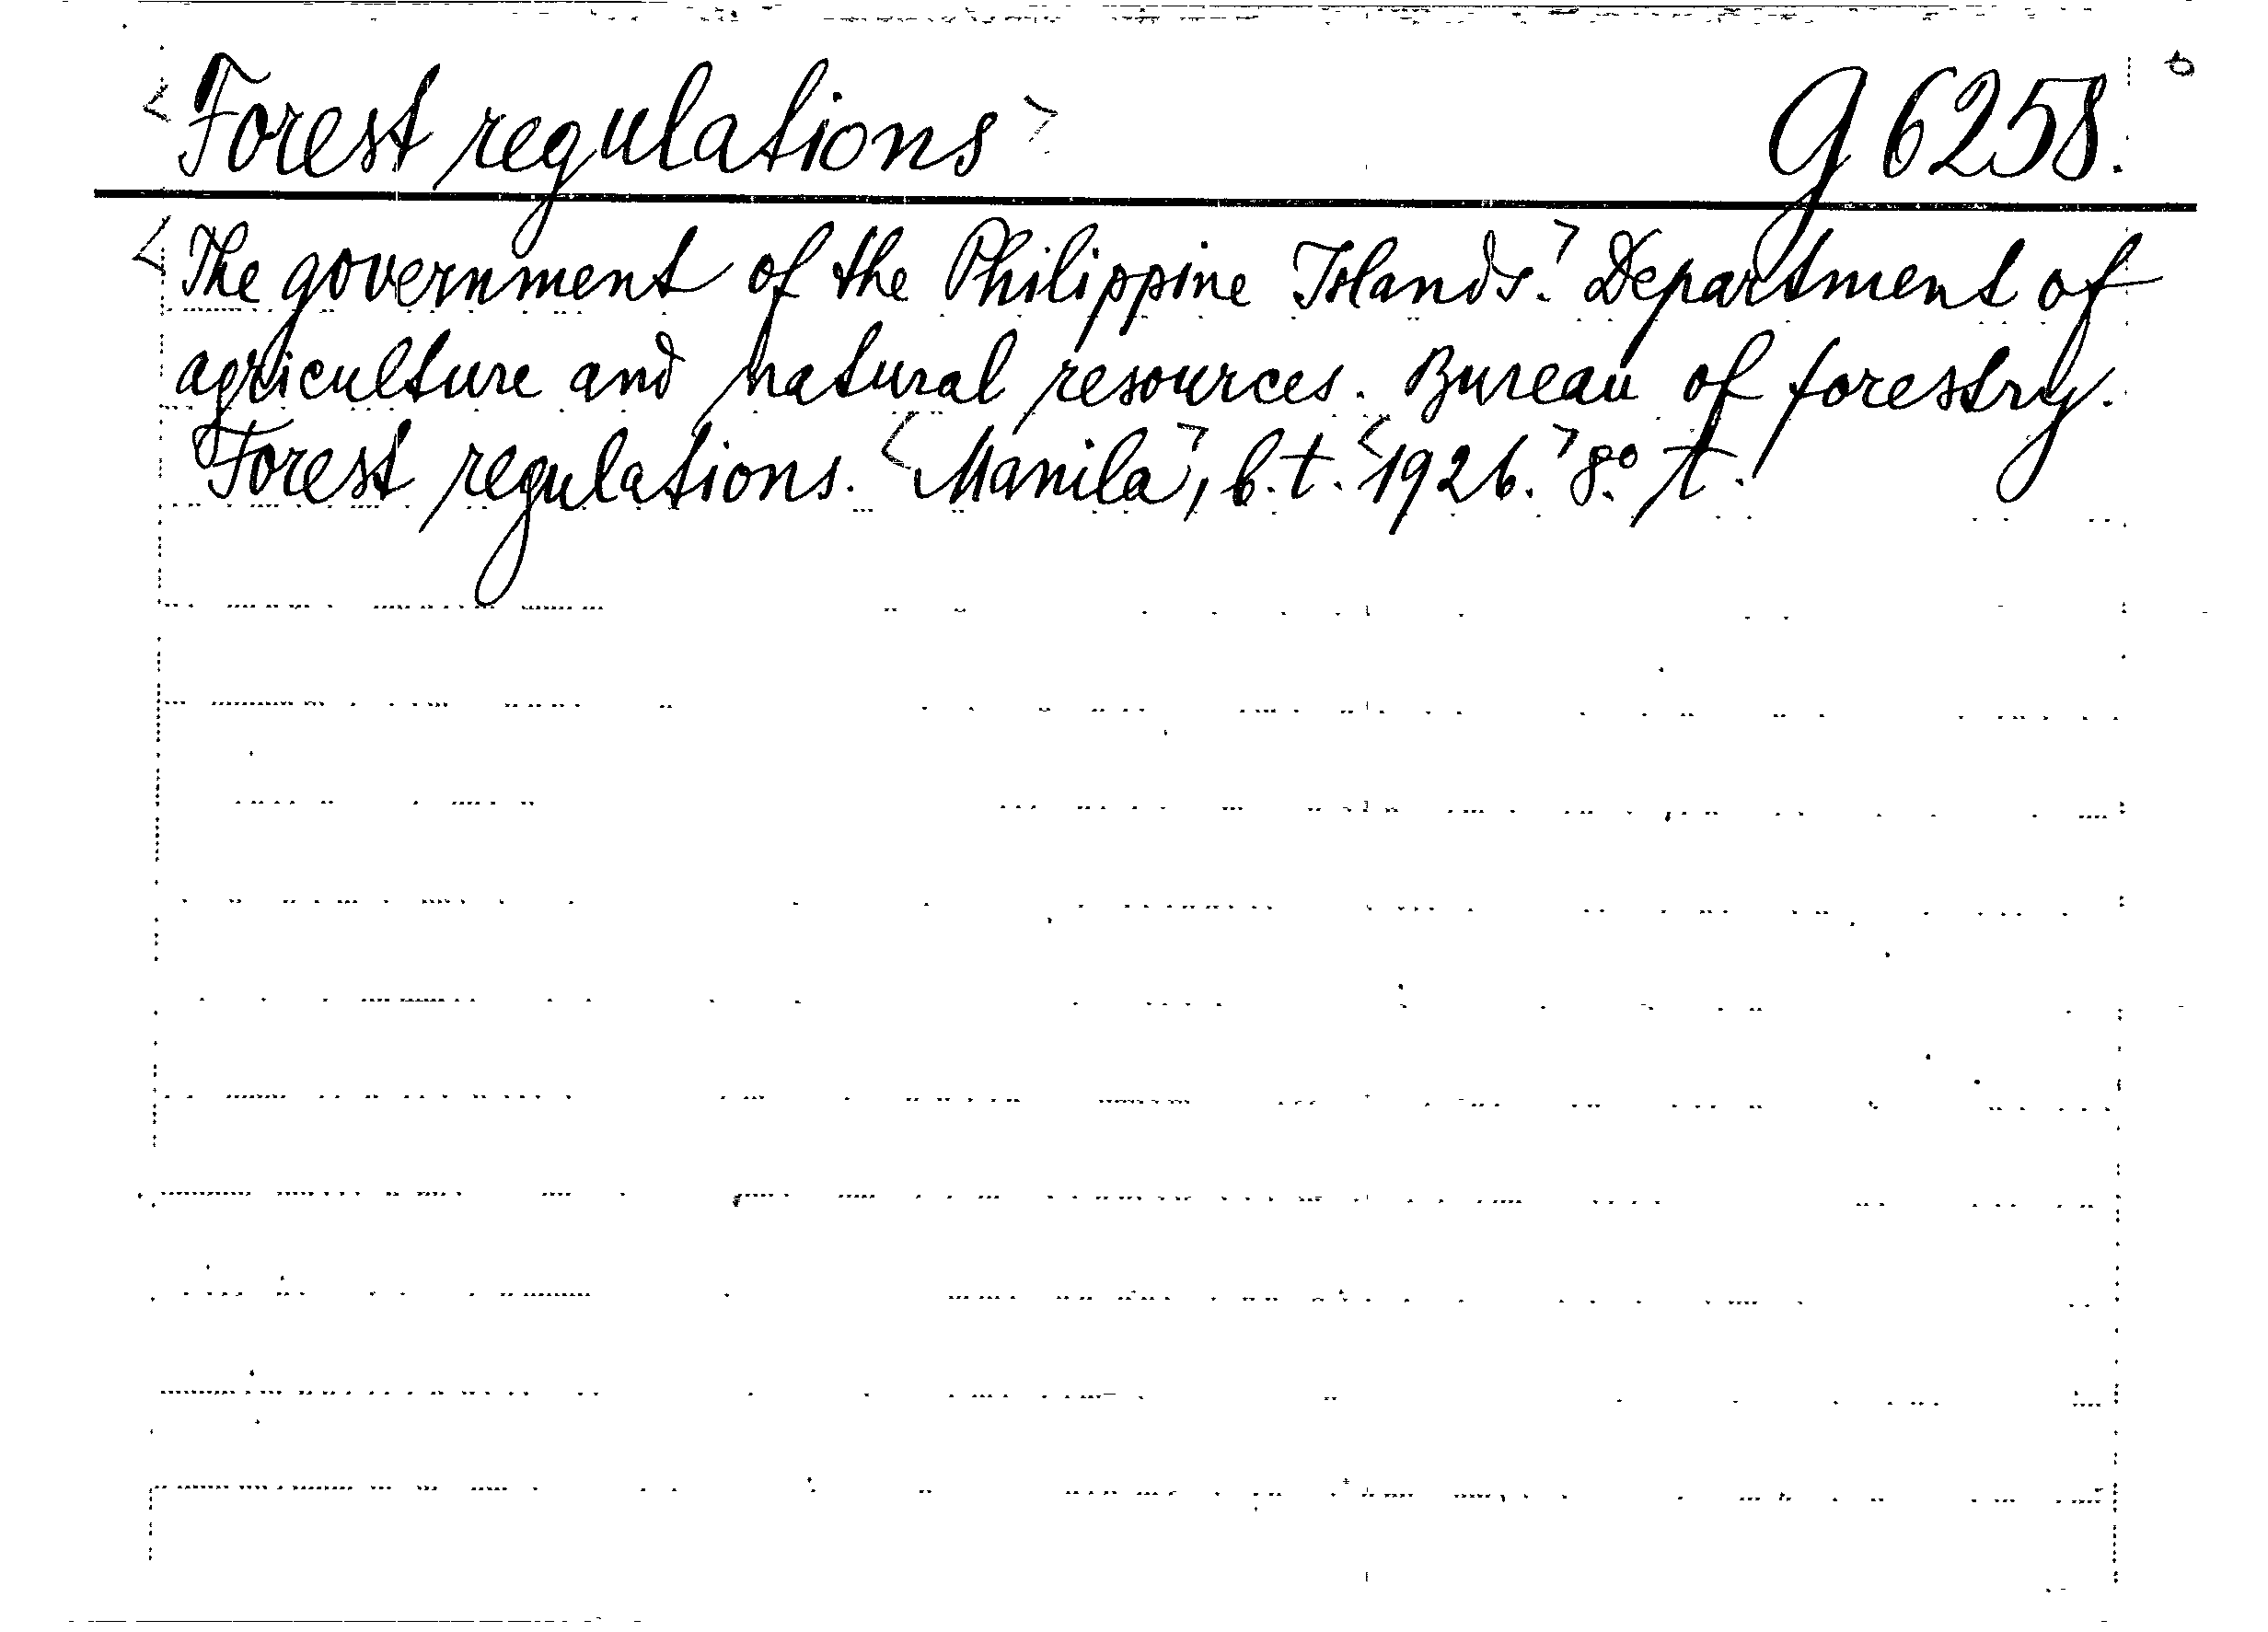 <Forest regulations> G 6258.
<The government of the Philippine Islands.> Department of
agriculture and natural resources. Bureau of forestry.
Forest regulations. <Manila>, b.t. <1926.> 8.° t.